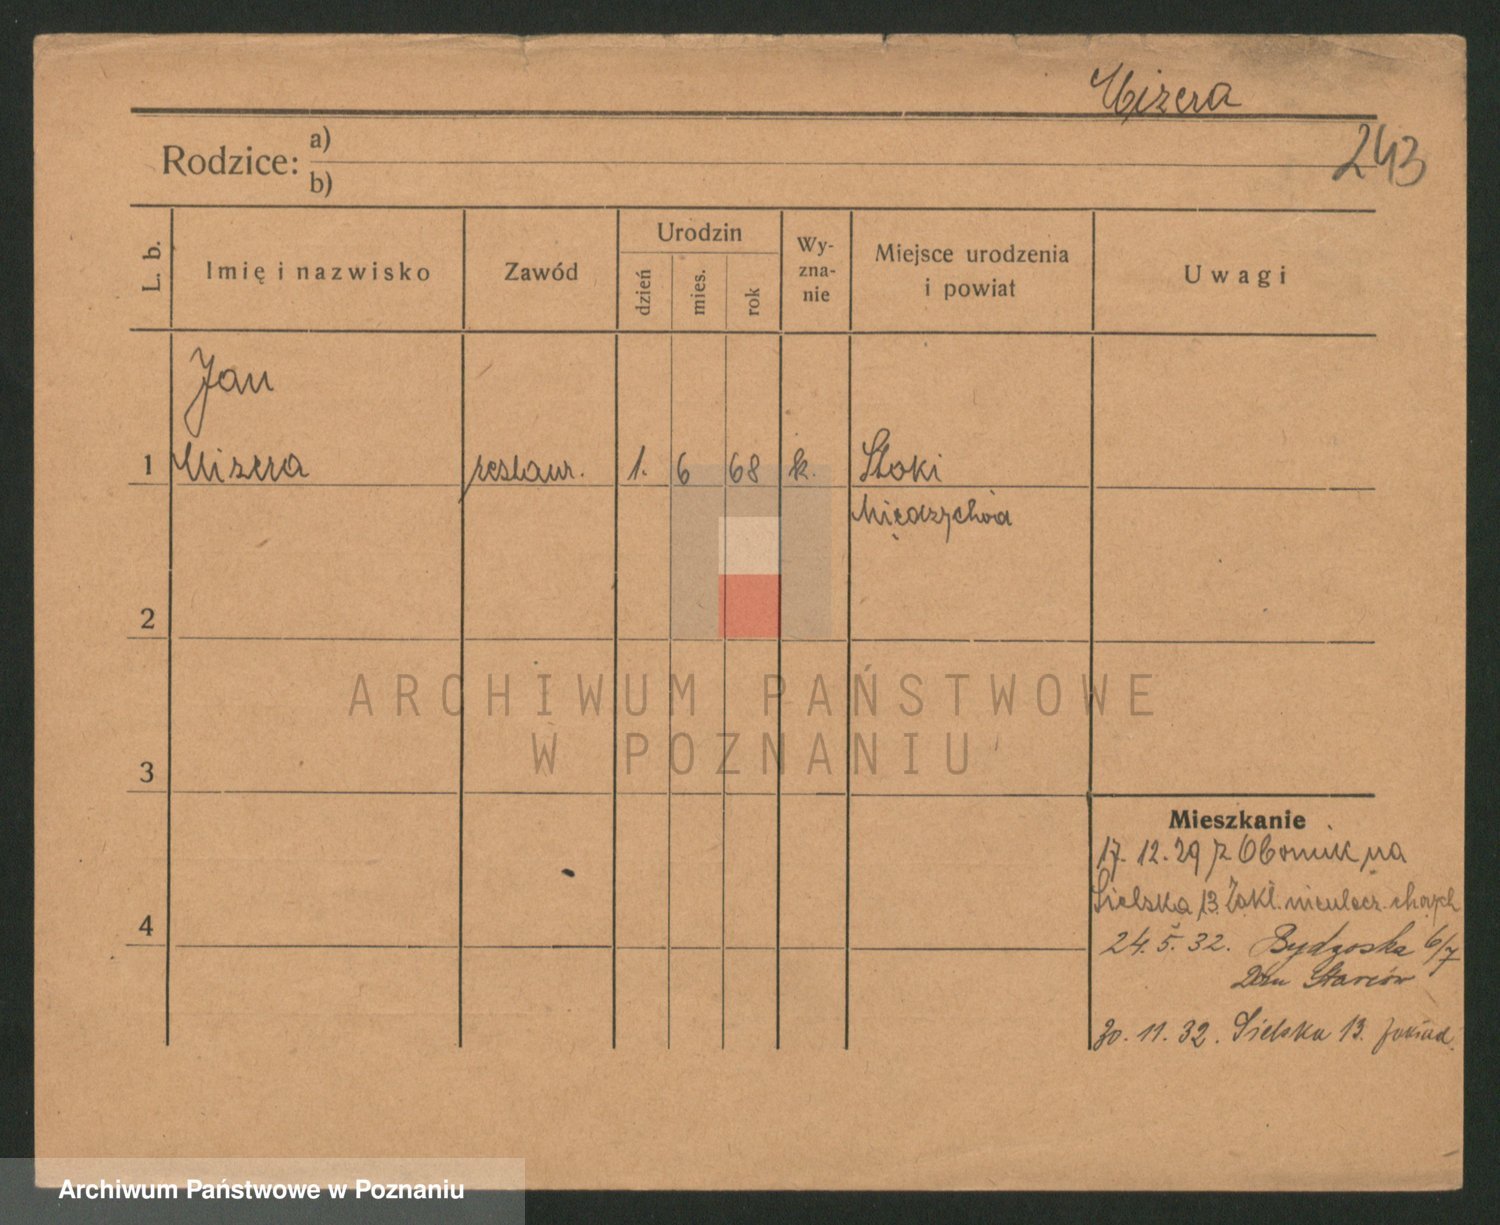 Mizera
243
Rodzice: a)
b)
L. b.
Imię i nazwisko
Zawód
Urodzin
dzień
mies.
rok
Wy-
zna-
nie
Miejsce urodzenia
i powiat
Uwagi
Jan
1 Mizera restaur. 1. 6 68 k. Stoki
Międzychód
2
3
4
Mieszkanie
17. 12. 29 z Obornik na
Sielska 13. Zakł. nieulecz. chorych
24. 5. 32. Bydgoska 6/7
Dom Starców
30. 11. 32. Sielska 13.
ARCHIWUM PAŃSTWOWE
W POZNANIU
Archiwum Państwowe w Poznaniu